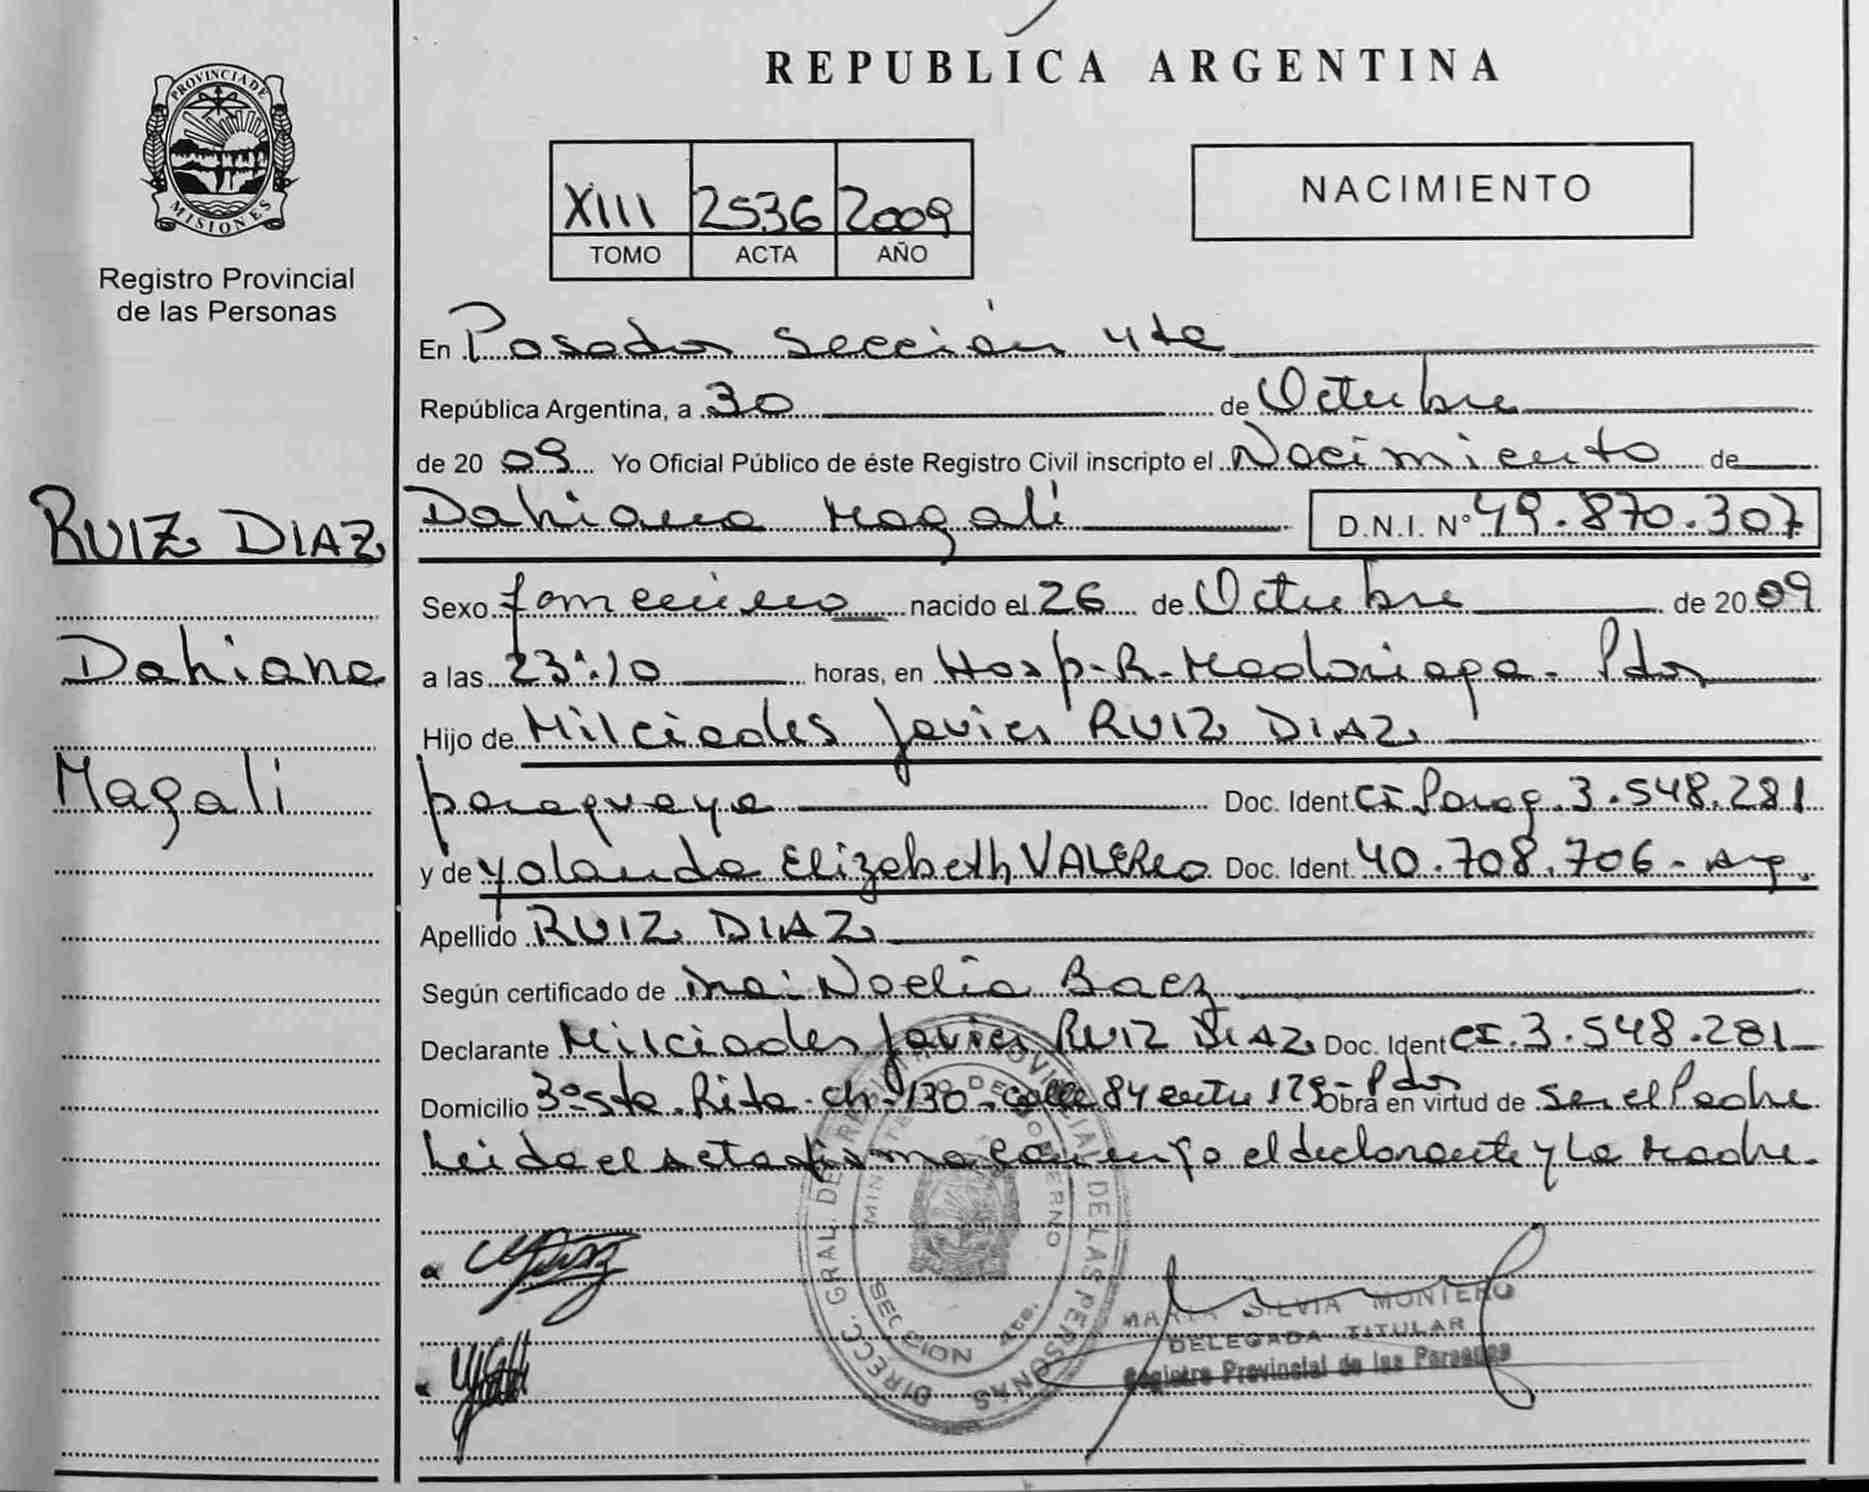 PROVINCIA DE
MISIONES
Registro Provincial
de las Personas
RUIZ DIAZ
Dahiana
Magali
REPUBLICA ARGENTINA
XIII 2536 2009
TOMO ACTA AÑO
NACIMIENTO
En Posadas Sección 4ta
República Argentina, a 30 de Octubre
de 20 09 Yo Oficial Público de éste Registro Civil inscripto el Nacimiento de
Dahiana Magali D.N.I. N° 49.870.307
Sexo femenino nacido el 26 de Octubre de 20 09
a las 23:10 horas, en Hosp. R. Madariaga - Pdas
Hijo de Milciades Javier RUIZ DIAZ
paraguaya Doc. Ident. CI Parag. 3.548.281
y de Yolanda Elizabeth VALERIO Doc. Ident. 40.708.706 - Arg.
Apellido RUIZ DIAZ
Según certificado de Noelia Baez
Declarante Milciades Javier RUIZ DIAZ Doc. Ident CI. 3.548.281
Domicilio B° Sta. Rita - ch - 130 - calle 84 entre 129 - Pdas Obra en virtud de ser el Padre
Leida el acta firma conmigo el declarante y la Madre.
DIRECC. GRAL. DE REGISTRO PROVINCIAL DE LAS PERSONAS
MINISTERIO DE GOBIERNO
SECCION 4ta.
MARIA SILVIA MONTERO
DELEGADA TITULAR
Registro Provincial de las Personas